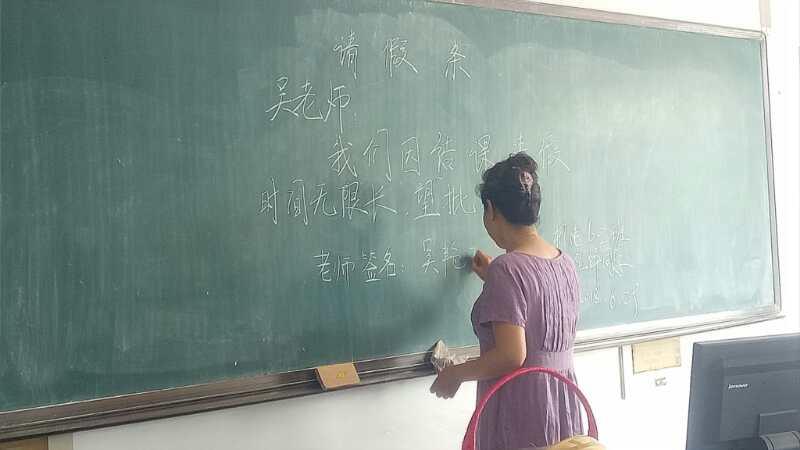 请假条
吴老师:
我们因结课请假
时间无限长,望批
老师签名:吴艳
2018.6.27
lenovo